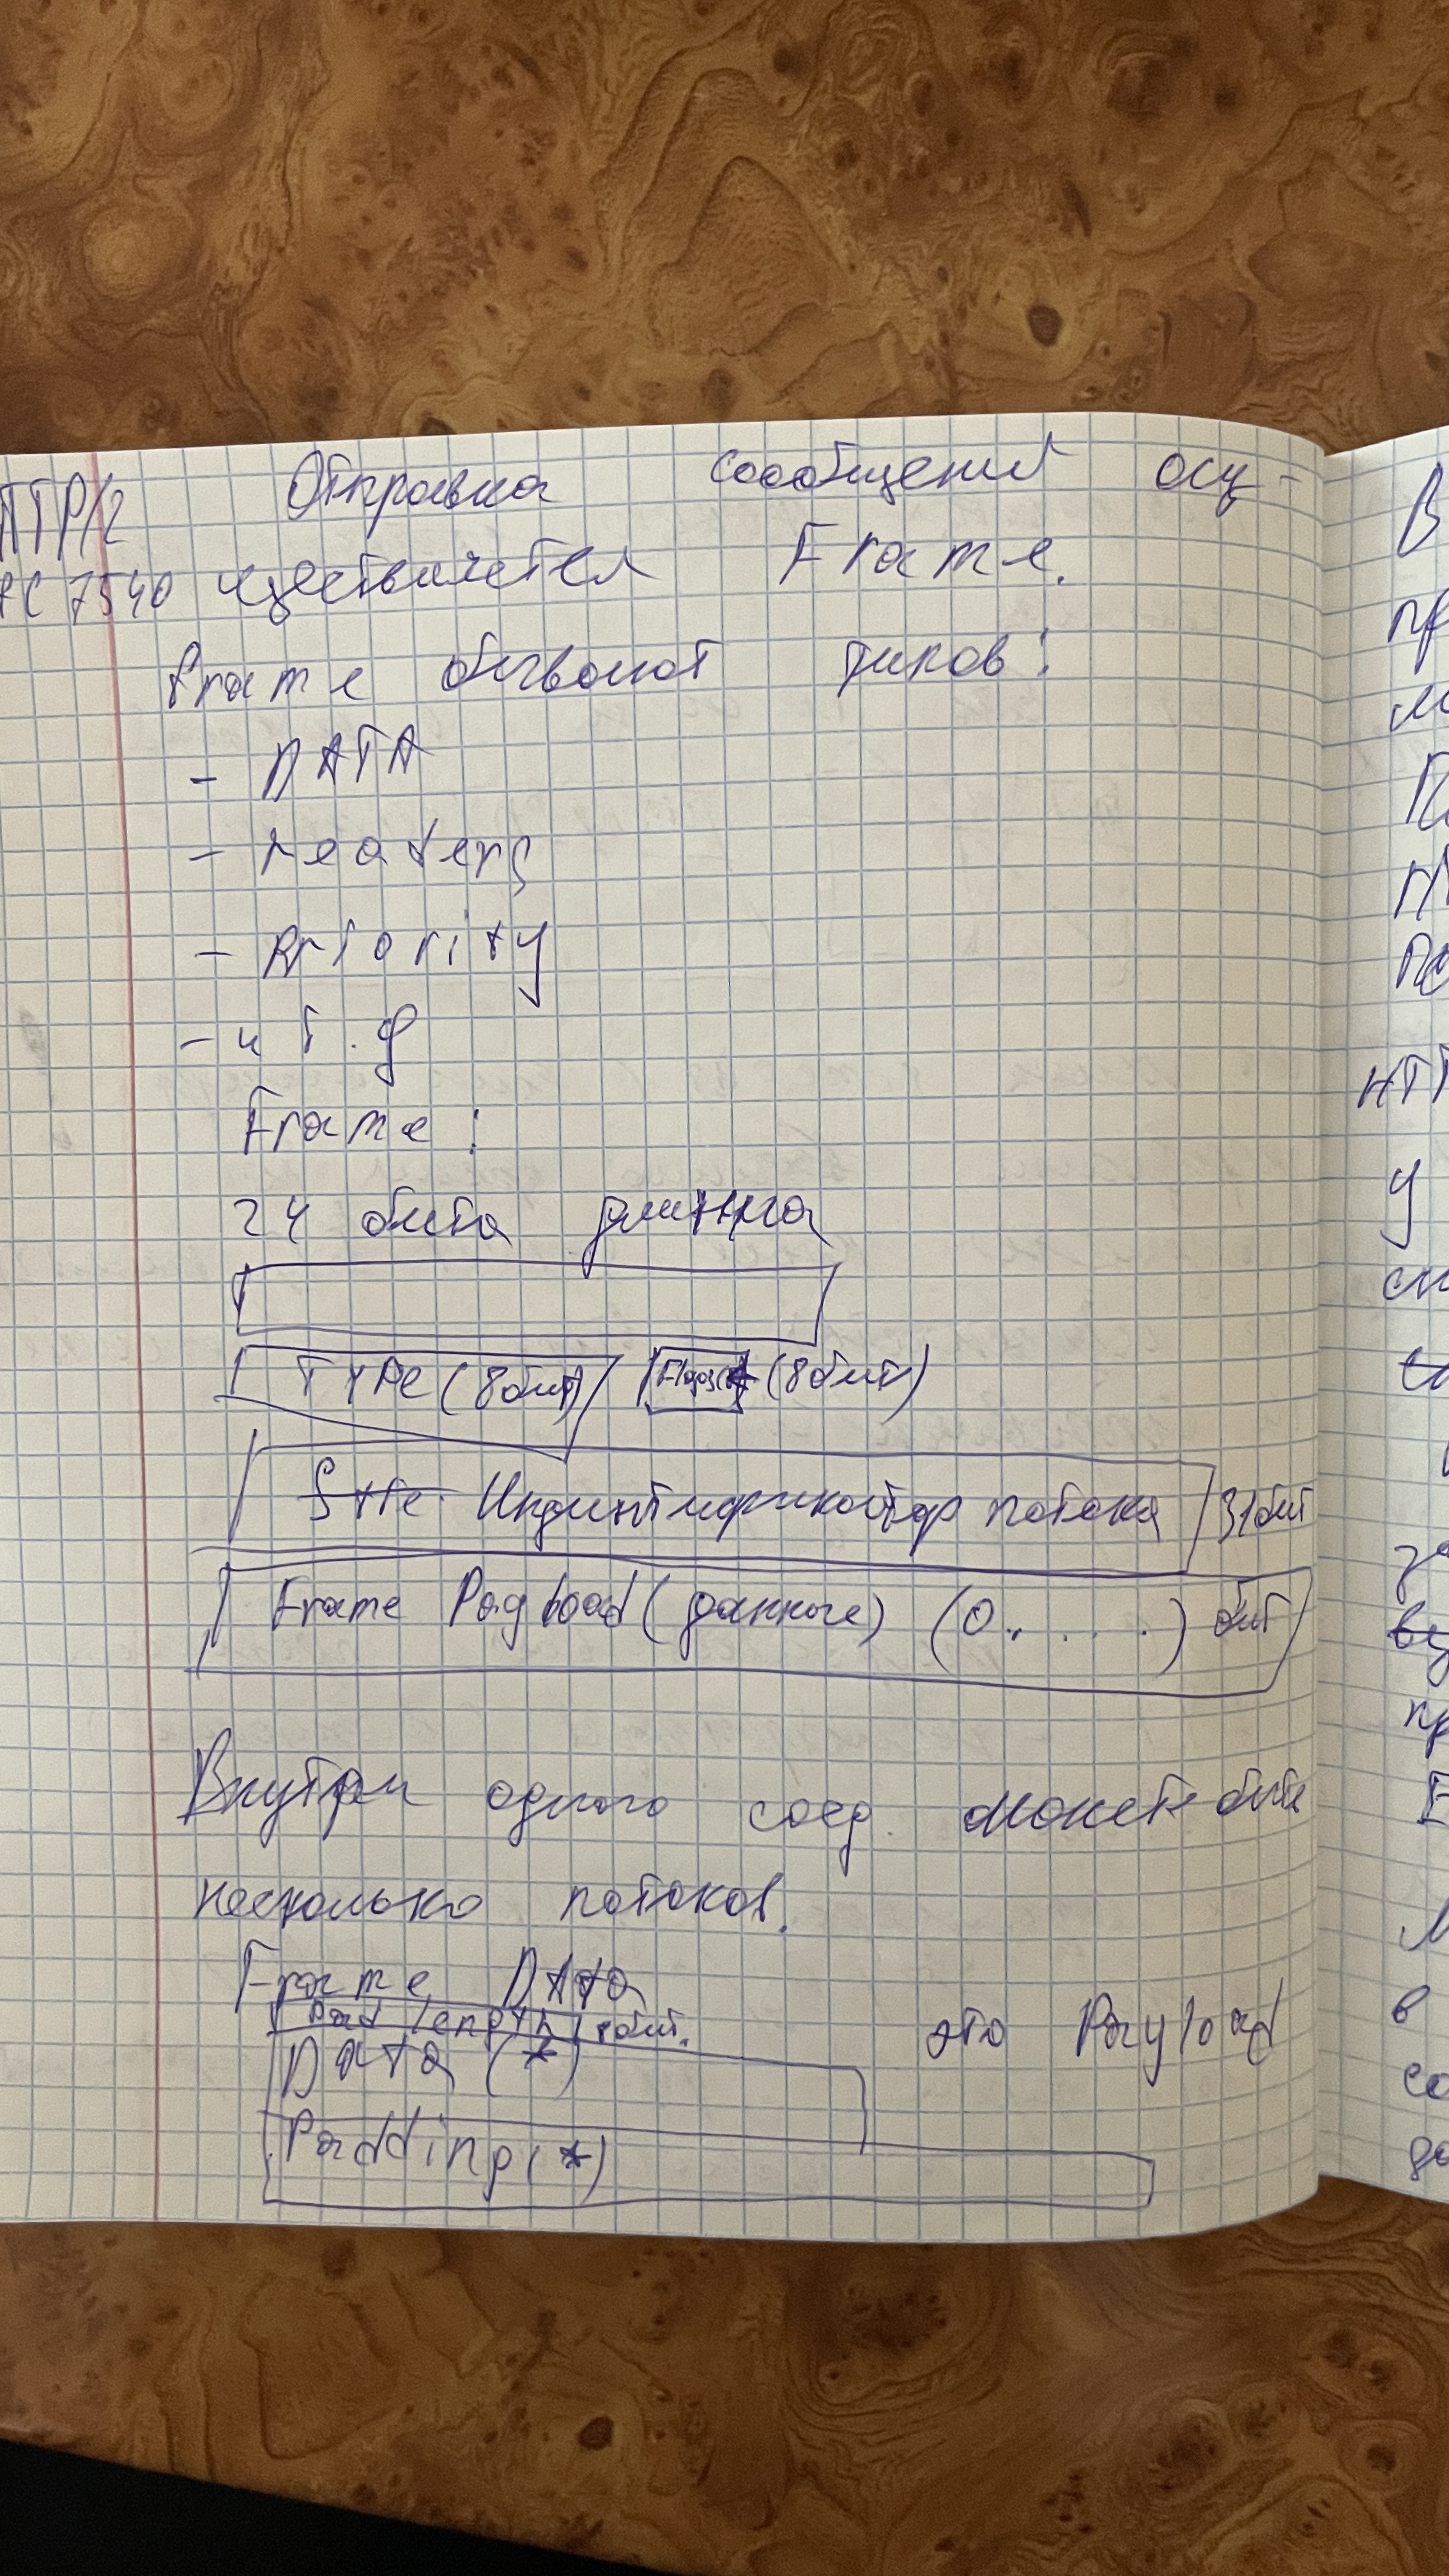 ТТР/2 Отправка сообщений осу-
FC 7540 ществляется Frame.
frame бывают типов:
- DATA
- Headers
- Priority
- и т.д
Frame:
24 бита длинна
TYPe (8бит) Flags (8бит)
Индинтификатор потока 31бит
Frame Payload (данные) (0.....) бит
Внутри одного соед. может быть
несколько потоков.
Frame DAta
Pad length 8бит. это Payload
DAta (*)
Padding (*)
В
пр
НТТ
у
в